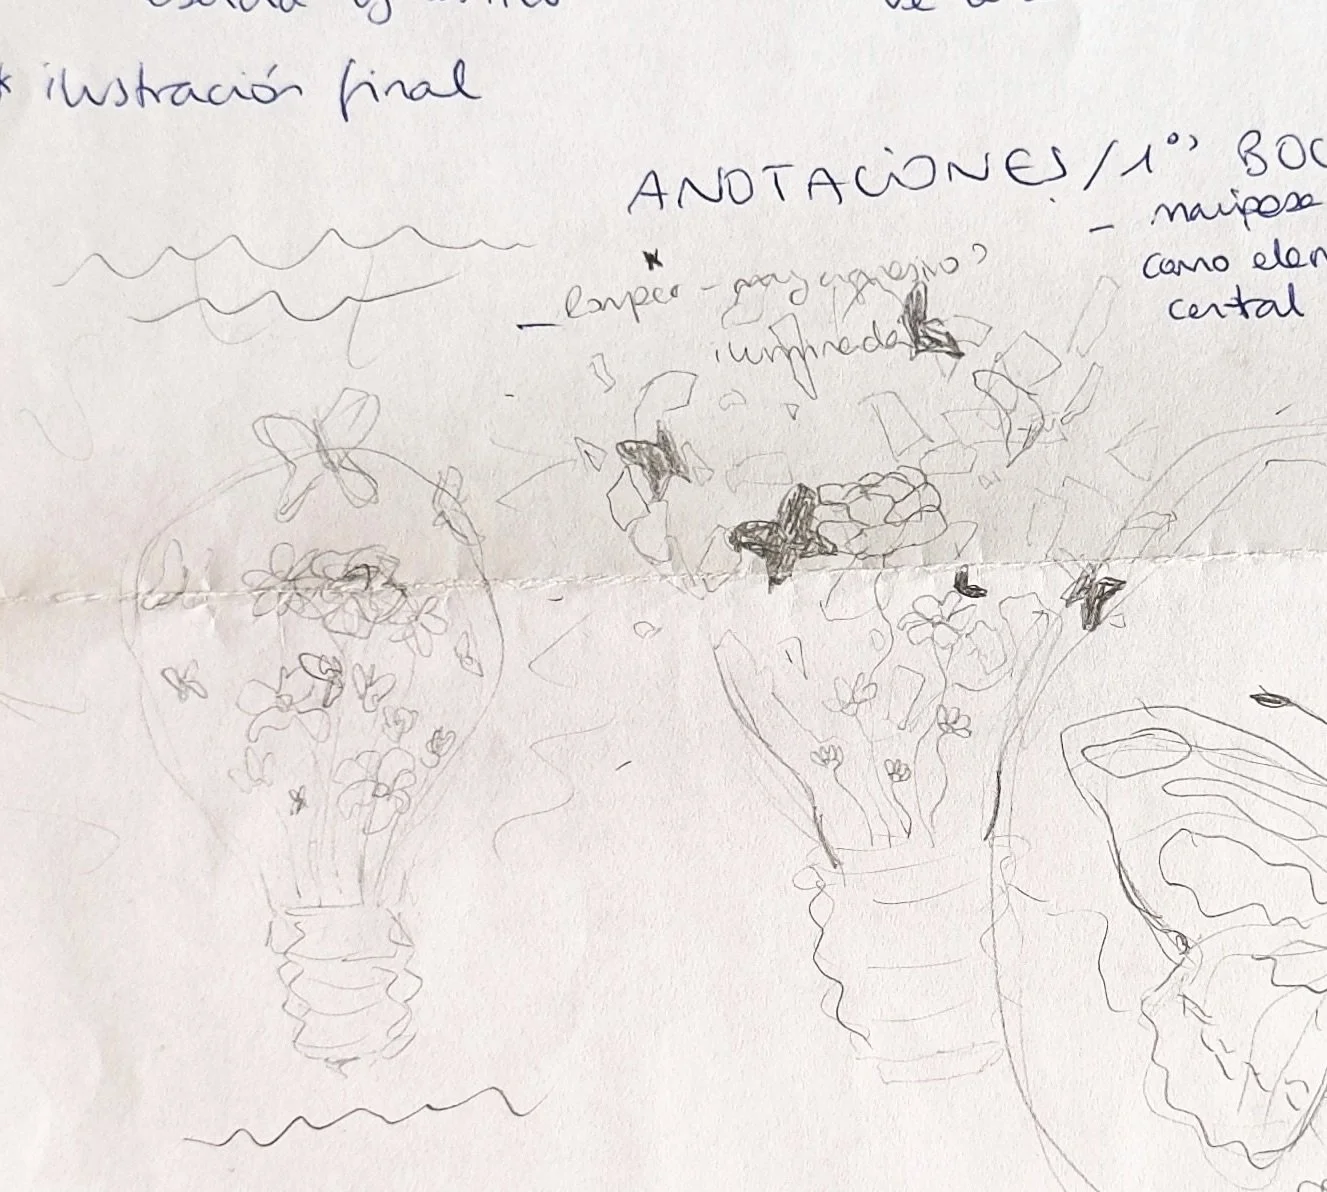 * ilustración final
ANOTACIONES / 1º BOC
- mariposa
como elem
central
- Romper - muy agresivo?
iluminada